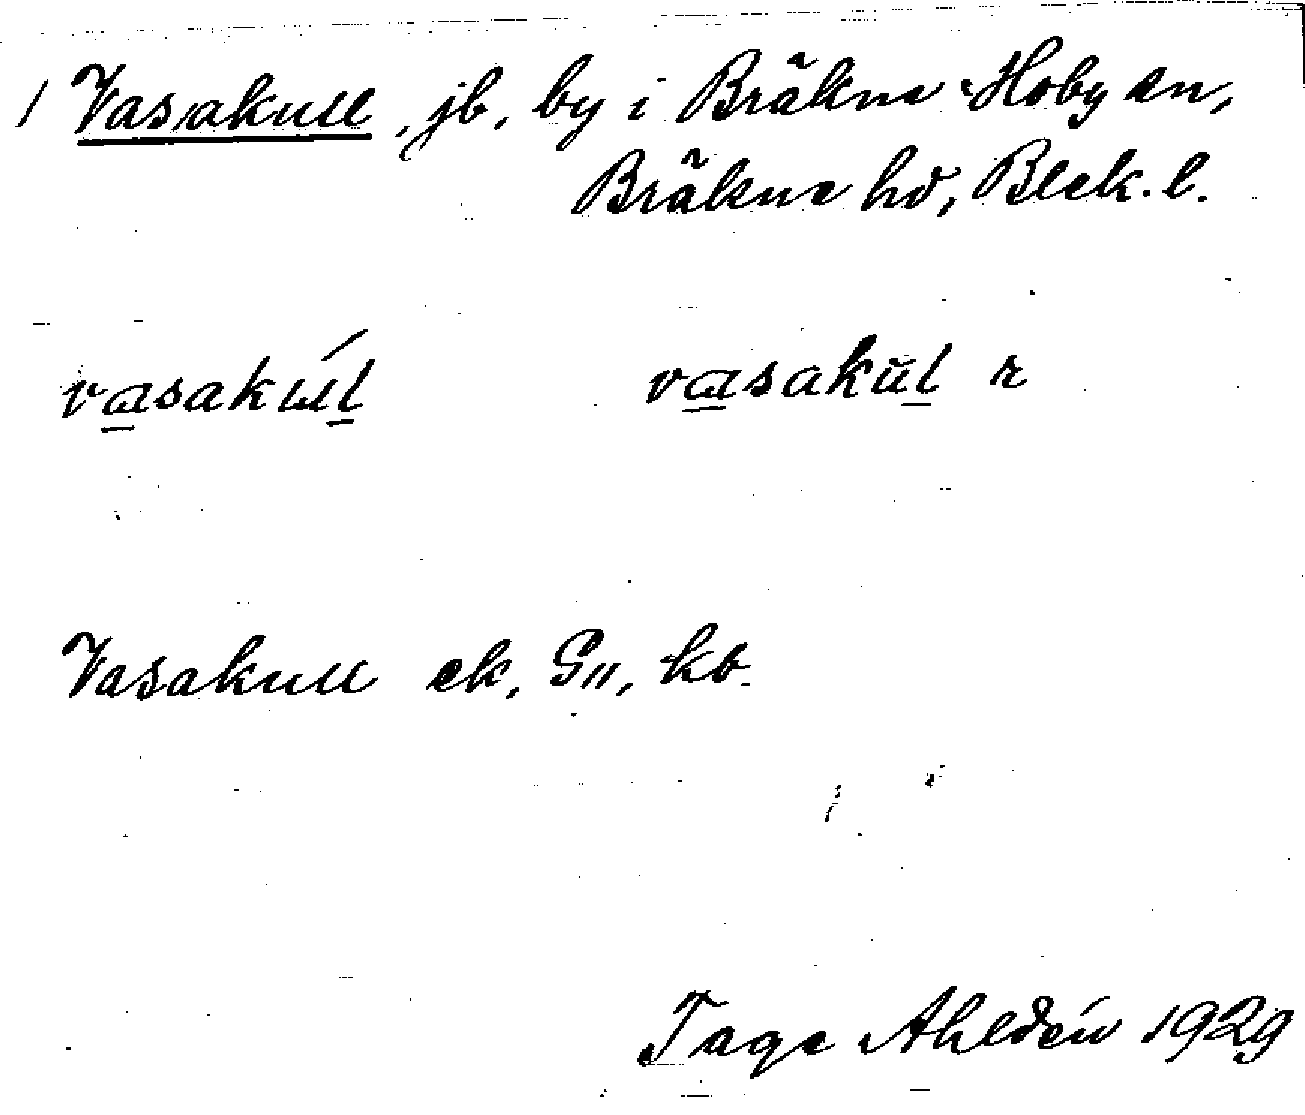 1 Vasakull, jb, by i Bräkne-Hoby sn,
Bräkne hd, Blek. l.
vasakúl vasakŭl r
Vasakull ek, G11, kb.
Tage Ahldén 1929